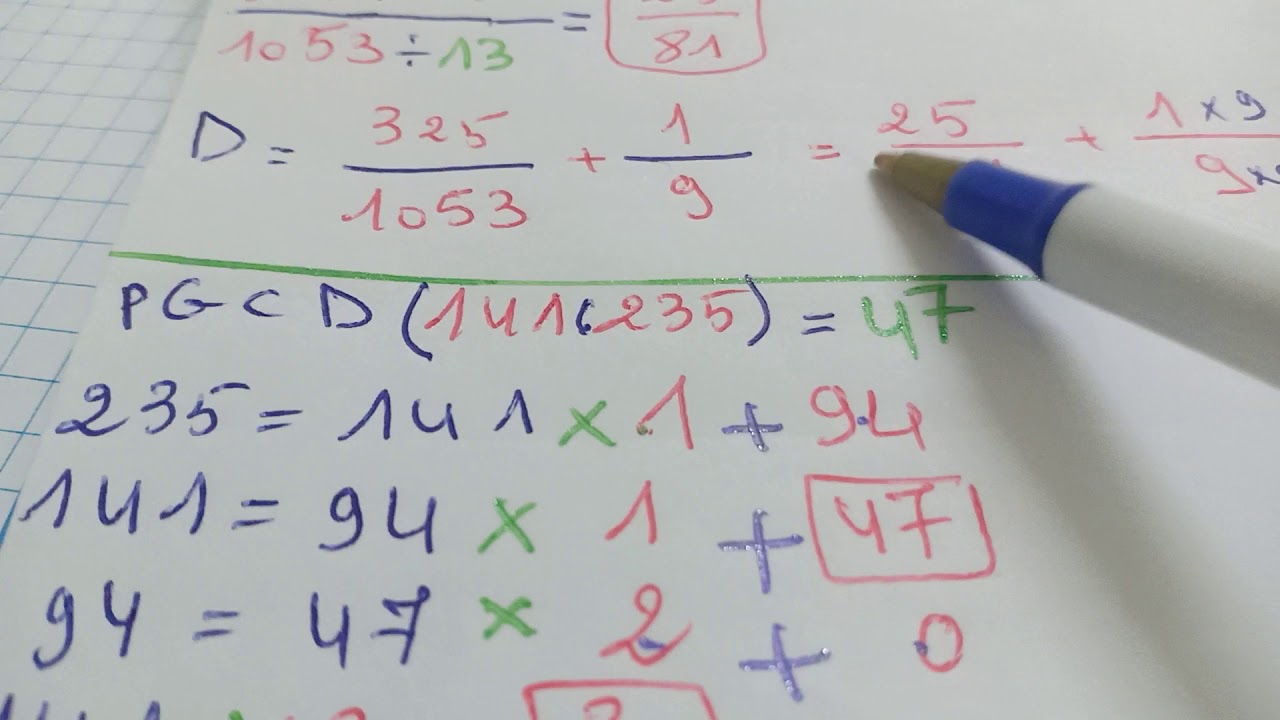 1053 ÷ 13 = 81
D = 325/1053 + 1/9 = 25 + 1 × 9/9 ×
PGCD (141(235) = 47
235 = 141 × 1 + 94
141 = 94 × 1 + 47
94 = 47 × 2 + 0